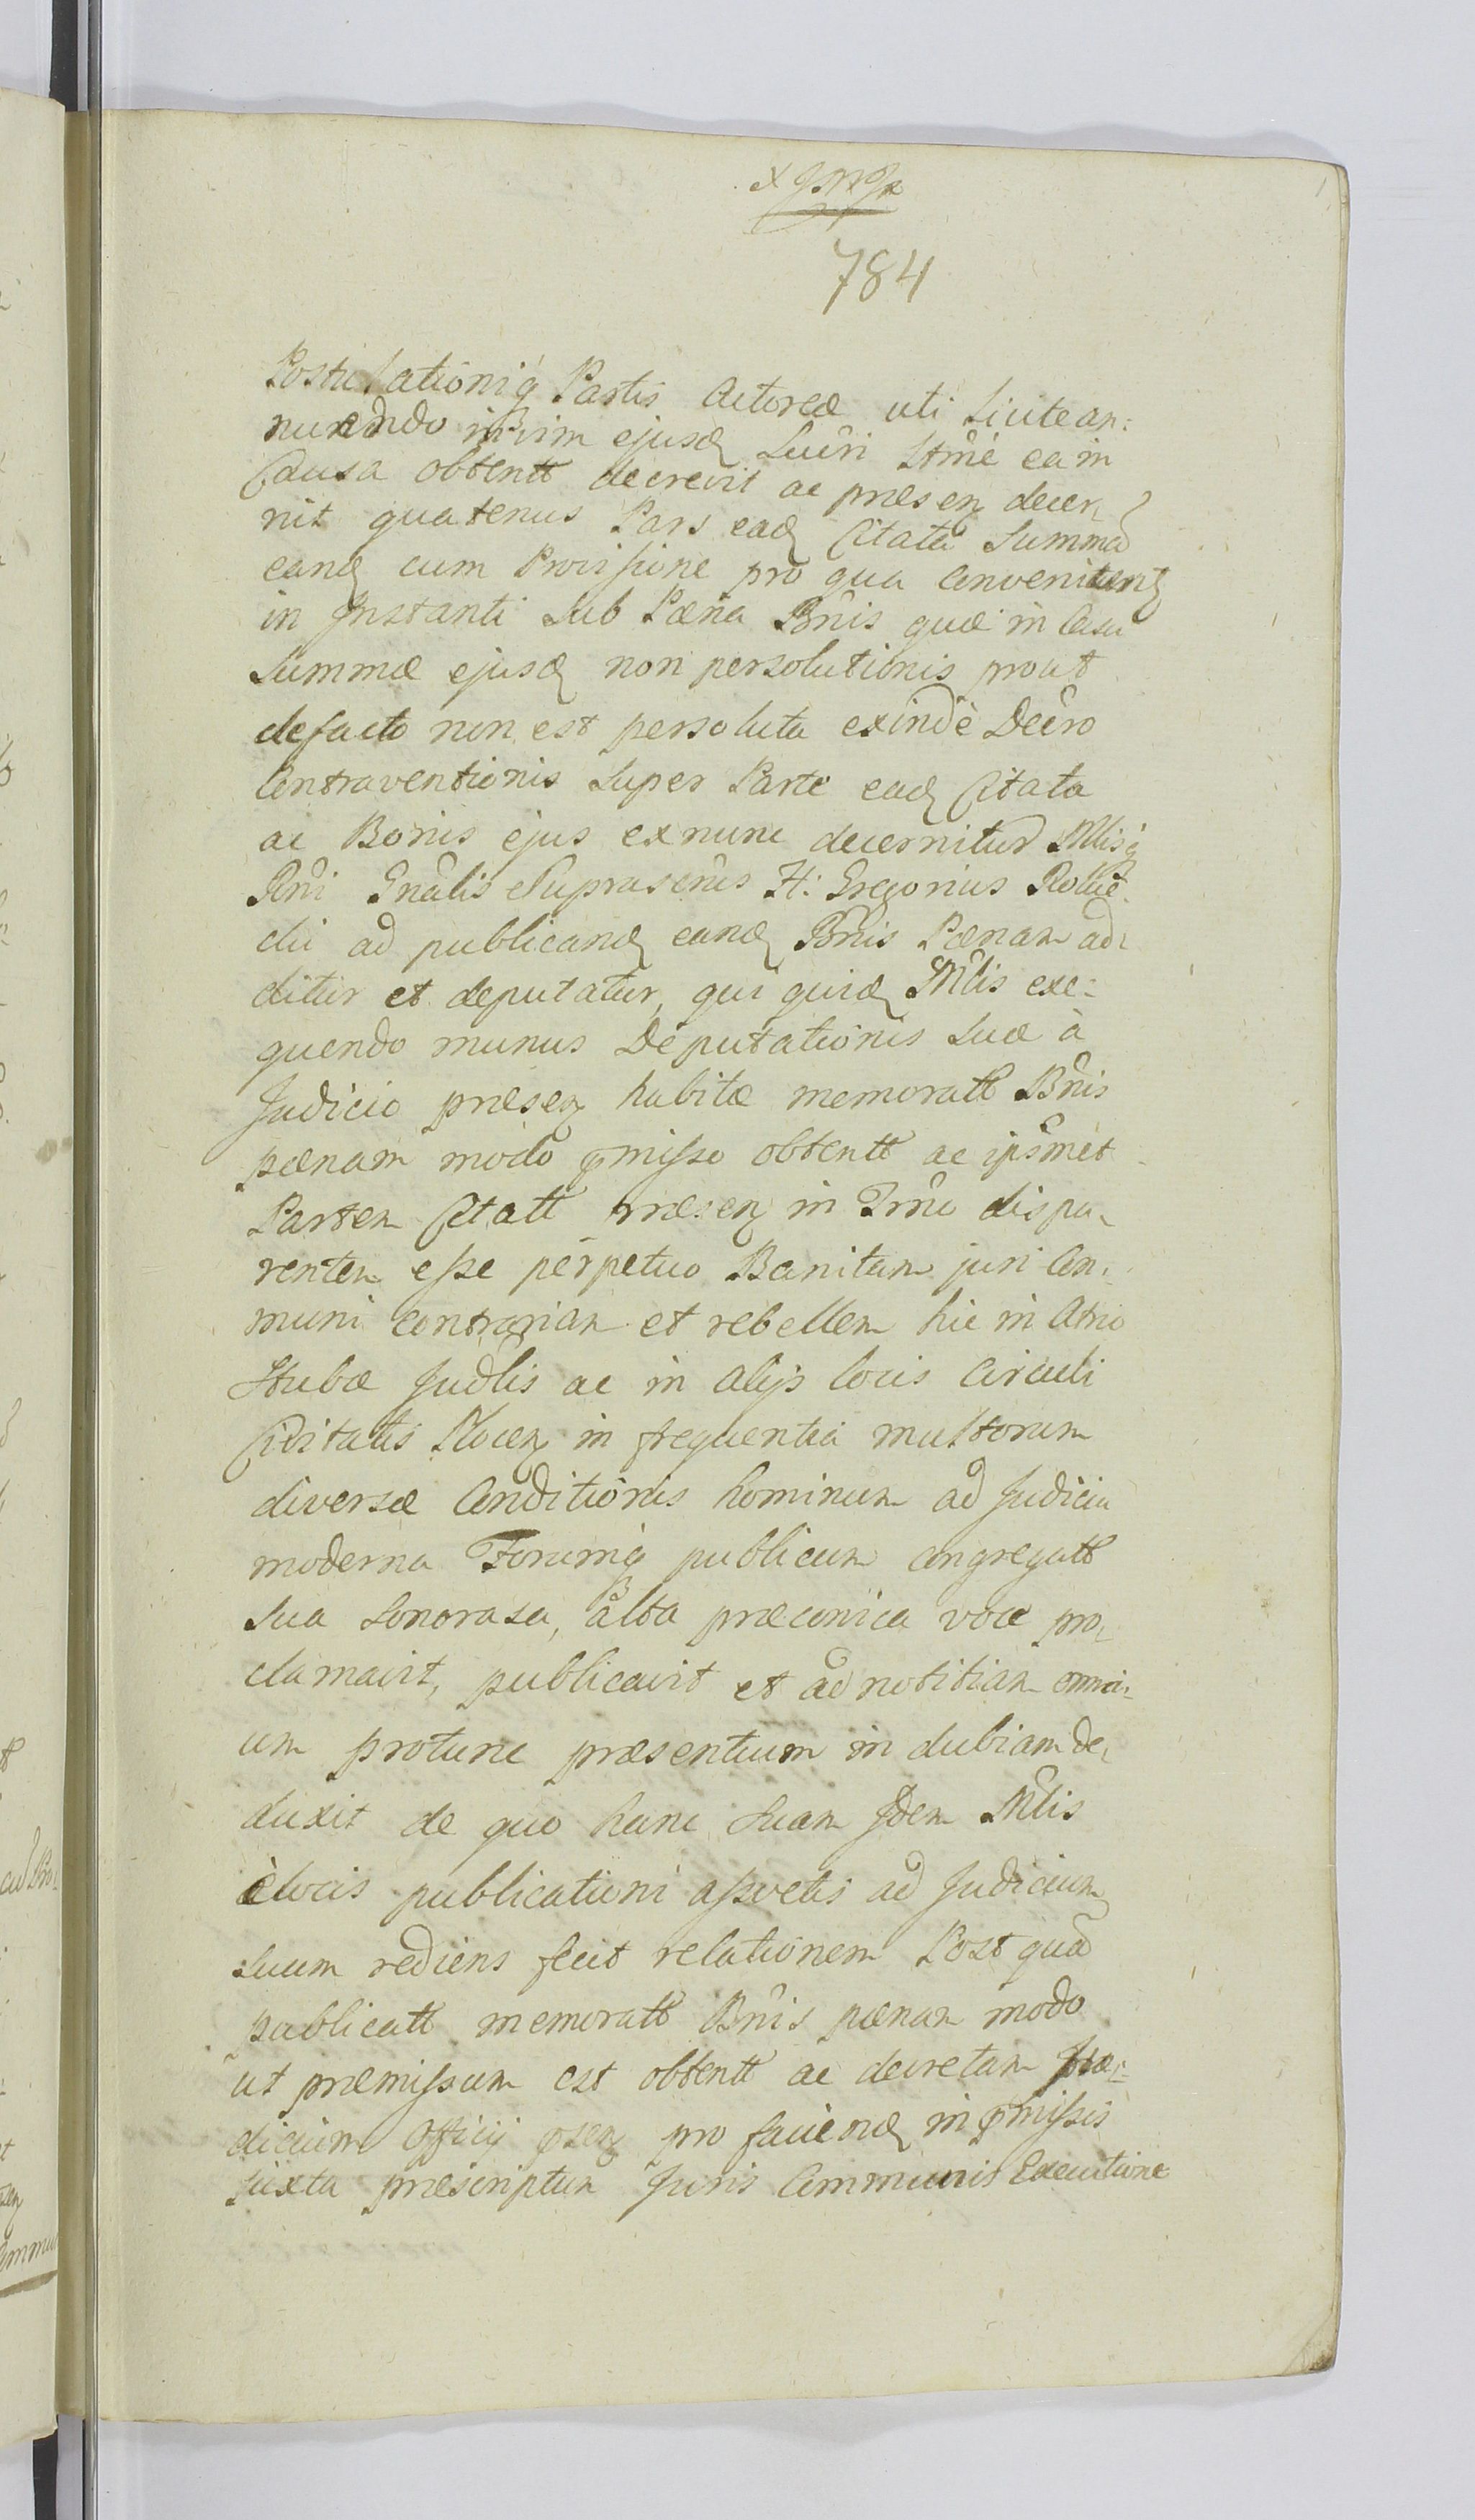 784
Postulationiq Partis Actoreæ uti Licite an:
nuendo in vim ejusd Lucri Ltme ea in
Causa obtentt decrevit ac præsen decer,
nit quatenus Pars ead Citata Summa
eand cum Provisione pro qua Convenit
in Instanti sub Pæna Bnis quæ in Casu
summæ ejusd non persolutionis prout
defacto non est persoluta exindè Decro
Contraventionis super Parte ead Citata
ac Bonis ejus exnunc decernitur Mlisq
Rni Gnalis Suprascrus H: Gregorius
ad publicand eand Bnis Pænam ad,
ditur et deputatur, qui quid Mlis exe:
quendo munus Deputationis suæ à
Judicio præsen habitæ memoratt Bnis
pænam modo pmisso obtentt ac ipsmet
Partem Citatt præsen in Trno dispa,
rentem esse perpetuo Banitam juri Com,
muni contrariam et rebellem hic in Atrio
Stubæ Judlis ac in alijs locis Circuli
Civitatis Plocen in frequentia multorum
diversæ Conditionis hominum ad Judicia
moderna Forumq publicum congregatt
sua sonorasa, alta præconica voce pro,
clamavit, publicavit et ad notitiam omni,
um protunc præsentium in dubiam de,
duxit de quo hanc suam Idem Mlis
è locis publicationi assvetis ad Judicium
suum rediens fecit relationem Post qua
publicatt memoratt Bnis pænam modo
ut præmissum est obtentt ac decretam Ju,
dicium Officij psen pro faciend in pmissis
juxta præscriptum Juris Communis Executione